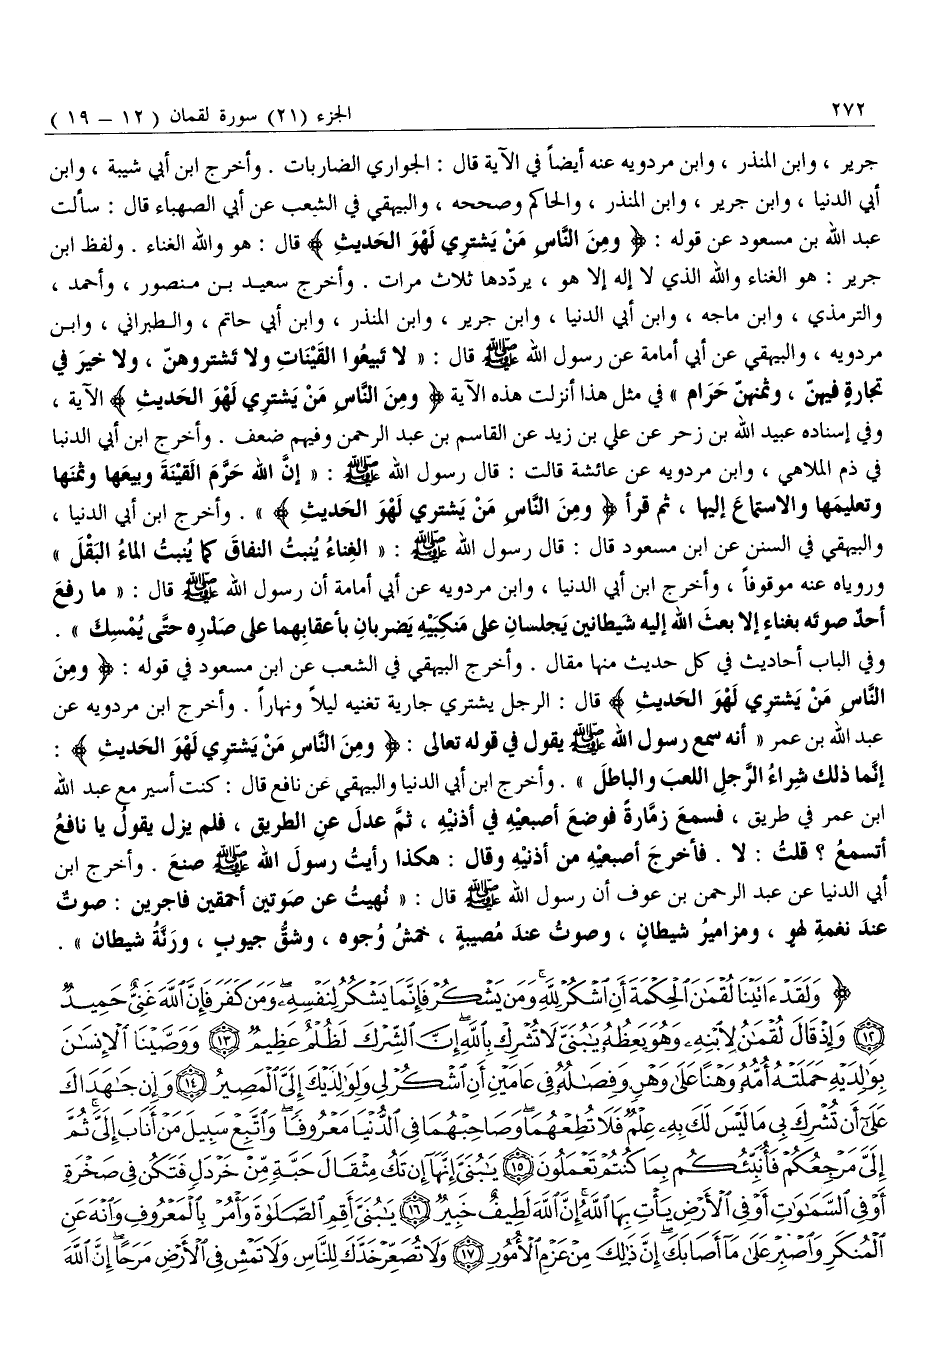 ٢٧٢ الجزء (٢١) سورة لقمان ( ١٢ – ١٩ )
جرير ، وابن المنذر ، وابن مردويه عنه أيضاً في الآية قال : الجواري الضاربات . وأخرج ابن أبي شيبة ، وابن
أبي الدنيا ، وابن جرير ، وابن المنذر ، والحاكم وصححه ، والبيهقي في الشعب عن أبي الصهباء قال : سألت
عبد الله بن مسعود عن قوله : ﴿ ومِنَ النَّاسِ مَنْ يَشترِي لَهْوَ الحَديثِ ﴾ قال : هو والله الغناء . ولفظ ابن
جرير : هو الغناء والله الذي لا إله إلا هو ، يردّدها ثلاث مرات . وأخرج سعيد بن منصور ، وأحمد ،
والترمذي ، وابن ماجه ، وابن أبي الدنيا ، وابن جرير ، وابن المنذر ، وابن أبي حاتم ، والطبراني ، وابن
مردويه ، والبيهقي عن أبي أمامة عن رسول الله ﷺ قال : « لا تَبيعُوا القَيْنَاتِ ولا تَشتروهنّ ، ولا خيرَ في
تجارةٍ فيهنّ ، وثمنهنّ حَرَام » في مثل هذا أنزلت هذه الآية ﴿ ومِنَ النَّاسِ مَنْ يَشترِي لَهْوَ الحَديثِ ﴾ الآية ،
وفي إسناده عبيد الله بن زحر عن علي بن زيد عن القاسم بن عبد الرحمن وفيهم ضعف . وأخرج ابن أبي الدنيا
في ذم الملاهي ، وابن مردويه عن عائشة قالت : قال رسول الله ﷺ : « إنَّ الله حَرَّمَ القَيْنَةَ وبيعَها وثمنَها
وتعليمَها والاستماعَ إليها ، ثم قرأ ﴿ ومِنَ النَّاسِ مَنْ يَشترِي لَهْوَ الحَديثِ ﴾ » . وأخرج ابن أبي الدنيا ،
والبيهقي في السنن عن ابن مسعود قال : قال رسول الله ﷺ : « الغناءُ يُنبتُ النفاقَ كما يُنبتُ الماءُ البَقْلَ »
وروياه عنه موقوفاً ، وأخرج ابن أبي الدنيا ، وابن مردويه عن أبي أمامة أن رسول الله ﷺ قال : « ما رفعَ
أحدٌ صوتَه بغناءٍ إلا بعثَ الله إليه شيطانين يَجلسانِ على مَنكبَيْهِ يَضربانِ بأعقابِهما على صَدْرِه حتَّى يُمْسِكَ » .
وفي الباب أحاديث في كل حديث منها مقال . وأخرج البيهقي في الشعب عن ابن مسعود في قوله : ﴿ ومِنَ
النَّاسِ مَنْ يَشترِي لَهْوَ الحَديثِ ﴾ قال : الرجل يشتري جارية تغنيه ليلاً ونهاراً . وأخرج ابن مردويه عن
عبد الله بن عمر « أنه سمع رسول الله ﷺ يقول في قوله تعالى : ﴿ ومِنَ النَّاسِ مَنْ يَشترِي لَهْوَ الحَديثِ ﴾ :
إنَّما ذلك شِراءُ الرَّجلِ اللعبَ والباطلَ » . وأخرج ابن أبي الدنيا والبيهقي عن نافع قال : كنت أسير مع عبد الله
ابن عمر في طريق ، فسمعَ زمَّارةً فوضعَ أصبعيْهِ في أذنيْهِ ، ثمَّ عدلَ عنِ الطريق ، فلم يزل يقولُ يا نافعُ
أتسمعُ ؟ قلتُ : لا . فأخرجَ أصبعيْهِ من أذنيْهِ وقال : هكذا رأيتُ رسولَ الله ﷺ صنعَ . وأخرج ابن
أبي الدنيا عن عبد الرحمن بن عوف أن رسول الله ﷺ قال : « نُهيتُ عن صَوتين أحمقين فاجرين : صوتٌ
عندَ نغمةِ لهوٍ ، ومزاميرُ شيطانٍ ، وصوتٌ عندَ مُصيبةٍ ، خمشُ وُجوه ، وشقُّ جيوبٍ ، ورَنَّةُ شيطان » .
﴿ وَلَقَدْ ءَاتَيْنَا لُقْمَٰنَ ٱلْحِكْمَةَ أَنِ ٱشْكُرْ لِلَّهِ ۚ وَمَن يَشْكُرْ فَإِنَّمَا يَشْكُرُ لِنَفْسِهِۦ ۖ وَمَن كَفَرَ فَإِنَّ ٱللَّهَ غَنِىٌّ حَمِيدٌ
﴿١٢﴾ وَإِذْ قَالَ لُقْمَٰنُ لِٱبْنِهِۦ وَهُوَ يَعِظُهُۥ يَٰبُنَىَّ لَا تُشْرِكْ بِٱللَّهِ ۖ إِنَّ ٱلشِّرْكَ لَظُلْمٌ عَظِيمٌ ﴿١٣﴾ وَوَصَّيْنَا ٱلْإِنسَٰنَ
بِوَٰلِدَيْهِ حَمَلَتْهُ أُمُّهُۥ وَهْنًا عَلَىٰ وَهْنٍ وَفِصَٰلُهُۥ فِى عَامَيْنِ أَنِ ٱشْكُرْ لِى وَلِوَٰلِدَيْكَ إِلَىَّ ٱلْمَصِيرُ ﴿١٤﴾ وَإِن جَٰهَدَاكَ
عَلَىٰٓ أَن تُشْرِكَ بِى مَا لَيْسَ لَكَ بِهِۦ عِلْمٌ فَلَا تُطِعْهُمَا ۖ وَصَاحِبْهُمَا فِى ٱلدُّنْيَا مَعْرُوفًا ۖ وَٱتَّبِعْ سَبِيلَ مَنْ أَنَابَ إِلَىَّ ۚ ثُمَّ
إِلَىَّ مَرْجِعُكُمْ فَأُنَبِّئُكُم بِمَا كُنتُمْ تَعْمَلُونَ ﴿١٥﴾ يَٰبُنَىَّ إِنَّهَآ إِن تَكُ مِثْقَالَ حَبَّةٍ مِّنْ خَرْدَلٍ فَتَكُن فِى صَخْرَةٍ
أَوْ فِى ٱلسَّمَٰوَٰتِ أَوْ فِى ٱلْأَرْضِ يَأْتِ بِهَا ٱللَّهُ ۚ إِنَّ ٱللَّهَ لَطِيفٌ خَبِيرٌ ﴿١٦﴾ يَٰبُنَىَّ أَقِمِ ٱلصَّلَوٰةَ وَأْمُرْ بِٱلْمَعْرُوفِ وَٱنْهَ عَنِ
ٱلْمُنكَرِ وَٱصْبِرْ عَلَىٰ مَآ أَصَابَكَ ۖ إِنَّ ذَٰلِكَ مِنْ عَزْمِ ٱلْأُمُورِ ﴿١٧﴾ وَلَا تُصَعِّرْ خَدَّكَ لِلنَّاسِ وَلَا تَمْشِ فِى ٱلْأَرْضِ مَرَحًا ۖ إِنَّ ٱللَّهَ